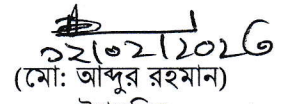 ১২/০২/২০২৬
(মো: আব্দুর রহমান)